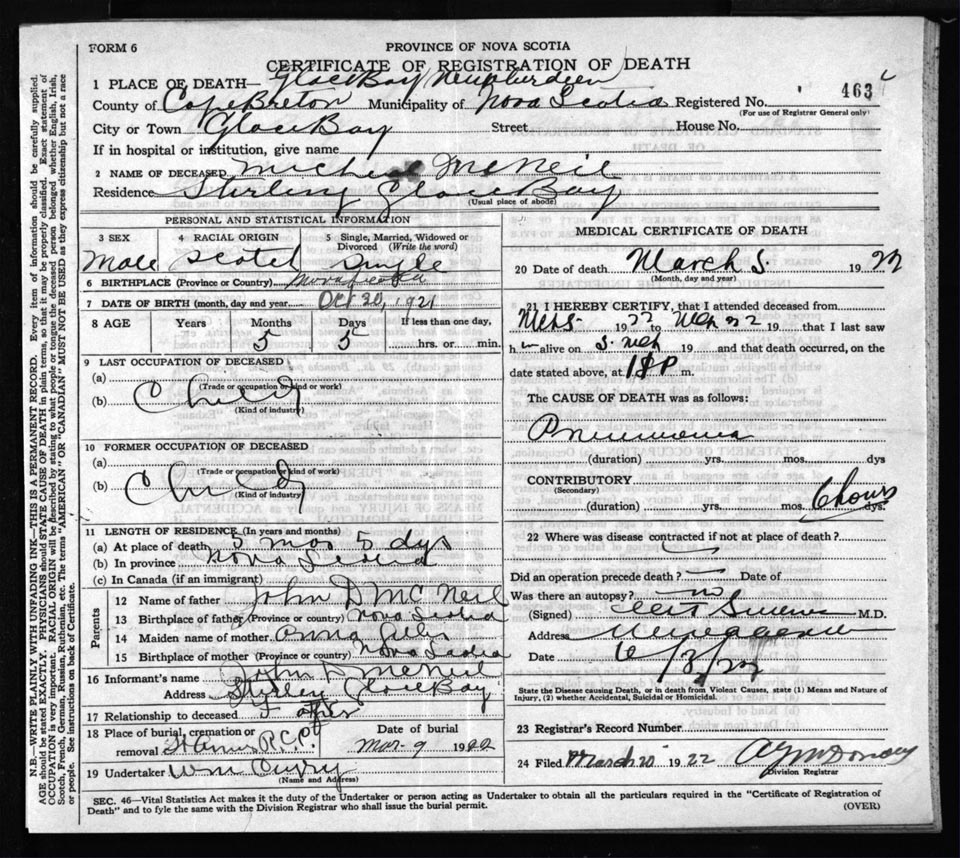 FORM 6
PROVINCE OF NOVA SCOTIA
CERTIFICATE OF REGISTRATION OF DEATH
1 PLACE OF DEATH— Glace Bay New Aberdeen
County of Cape Breton Municipality of Nova Scotia Registered No. 463
(For use of Registrar General only)
City or Town Glace Bay Street House No.
If in hospital or institution, give name
2 NAME OF DECEASED Micheal McNeil
Residence Stirling Glace Bay
(Usual place of abode)
PERSONAL AND STATISTICAL INFORMATION
3 SEX Male
4 RACIAL ORIGIN Scotch
5 Single, Married, Widowed or Divorced (Write the word) Single
6 BIRTHPLACE (Province or Country) Nova Scotia
7 DATE OF BIRTH (month, day and year) Oct 20, 1921
8 AGE Years Months Days If less than one day,
5 5 hrs. or min.
9 LAST OCCUPATION OF DECEASED
(a)
(Trade or occupation or kind of work)
(b) Child
(Kind of industry)
10 FORMER OCCUPATION OF DECEASED
(a)
(Trade or occupation or kind of work)
(b) Child
(Kind of industry)
11 LENGTH OF RESIDENCE (In years and months)
(a) At place of death 5 mos 5 dys
(b) In province Nova Scotia
(c) In Canada (if an immigrant)
Parents
12 Name of father John D McNeil
13 Birthplace of father (Province or country) Nova Scotia
14 Maiden name of mother Anna
15 Birthplace of mother (Province or country) Nova Scotia
16 Informant's name John D McNeil
Address Stirling Glace Bay
17 Relationship to deceased Father
18 Place of burial, cremation or removal St Annes R.C. Date of burial Mar. 9 1922
19 Undertaker Wm Curry
(Name and Address)
MEDICAL CERTIFICATE OF DEATH
20 Date of death March 5. 1922
(Month, day and year)
21 I HEREBY CERTIFY, that I attended deceased from
1922 to 22 19 that I last saw
h m alive on 5 Mch 19 and that death occurred, on the
date stated above, at 1 P m.
The CAUSE OF DEATH was as follows:
Pneumonia
(duration) yrs. mos. dys
CONTRIBUTORY
(Secondary)
(duration) yrs. mos. 6 hours dys.
22 Where was disease contracted if not at place of death?
Did an operation precede death? Date of
Was there an autopsy? no
(Signed) M.D.
Address
Date
State the Disease causing Death, or in death from Violent Causes, state (1) Means and Nature of
Injury, (2) whether Accidental, Suicidal or Homicidal.
23 Registrar's Record Number
24 Filed March 20 1922
Division Registrar
SEC. 46—Vital Statistics Act makes it the duty of the Undertaker or person acting as Undertaker to obtain all the particulars required in the "Certificate of Registration of
Death" and to fyle the same with the Division Registrar who shall issue the burial permit. (OVER)
N.B.—WRITE PLAINLY WITH UNFADING INK—THIS IS A PERMANENT RECORD. Every item of information should be carefully supplied.
AGE should be stated EXACTLY. PHYSICIANS should STATE CAUSE OF DEATH in plain terms, so that it may be properly classified. Exact statement of
OCCUPATION is very important. RACIAL ORIGIN will be described by stating to what people or tongue the deceased person belonged whether English, Irish,
Scotch, French, German, Russian, Ruthenian, etc. The terms "AMERICAN" OR "CANADIAN" MUST NOT BE USED as they express citizenship but not a race
or people. See instructions on back of Certificate.